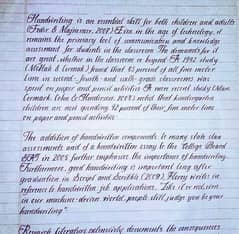 Handwriting is an essential skill for both children and adults
(Feder & Majnemer, 2007). Even in the age of technology, it
remains the primary tool of communication and knowledge
assessment for students in the classroom. The demands for it
are great, whether in the classroom or beyond. A 1992 study
(McHale & Cermak) found that 85 percent of all fine motor
time in second- and fourth-grade classrooms was
spent on paper and pencil activities. A more recent study (Marr,
Cermak, Cohn & Henderson, 2003) noted that kindergarten
children are now spending 42 percent of their fine motor time
on paper and pencil activities.
The addition of handwritten components to many state
assessments and of a handwritten essay to the College Board
SAT in 2005 further emphasize the importance of handwriting.
Furthermore, good handwriting is important long after
graduation. In Script and Scribble (2009), Florey writes in
reference to handwritten job applications, "Like it or not, even
in our machine-driven world, people still judge you by your
handwriting."
Research literature extensively documents the consequences